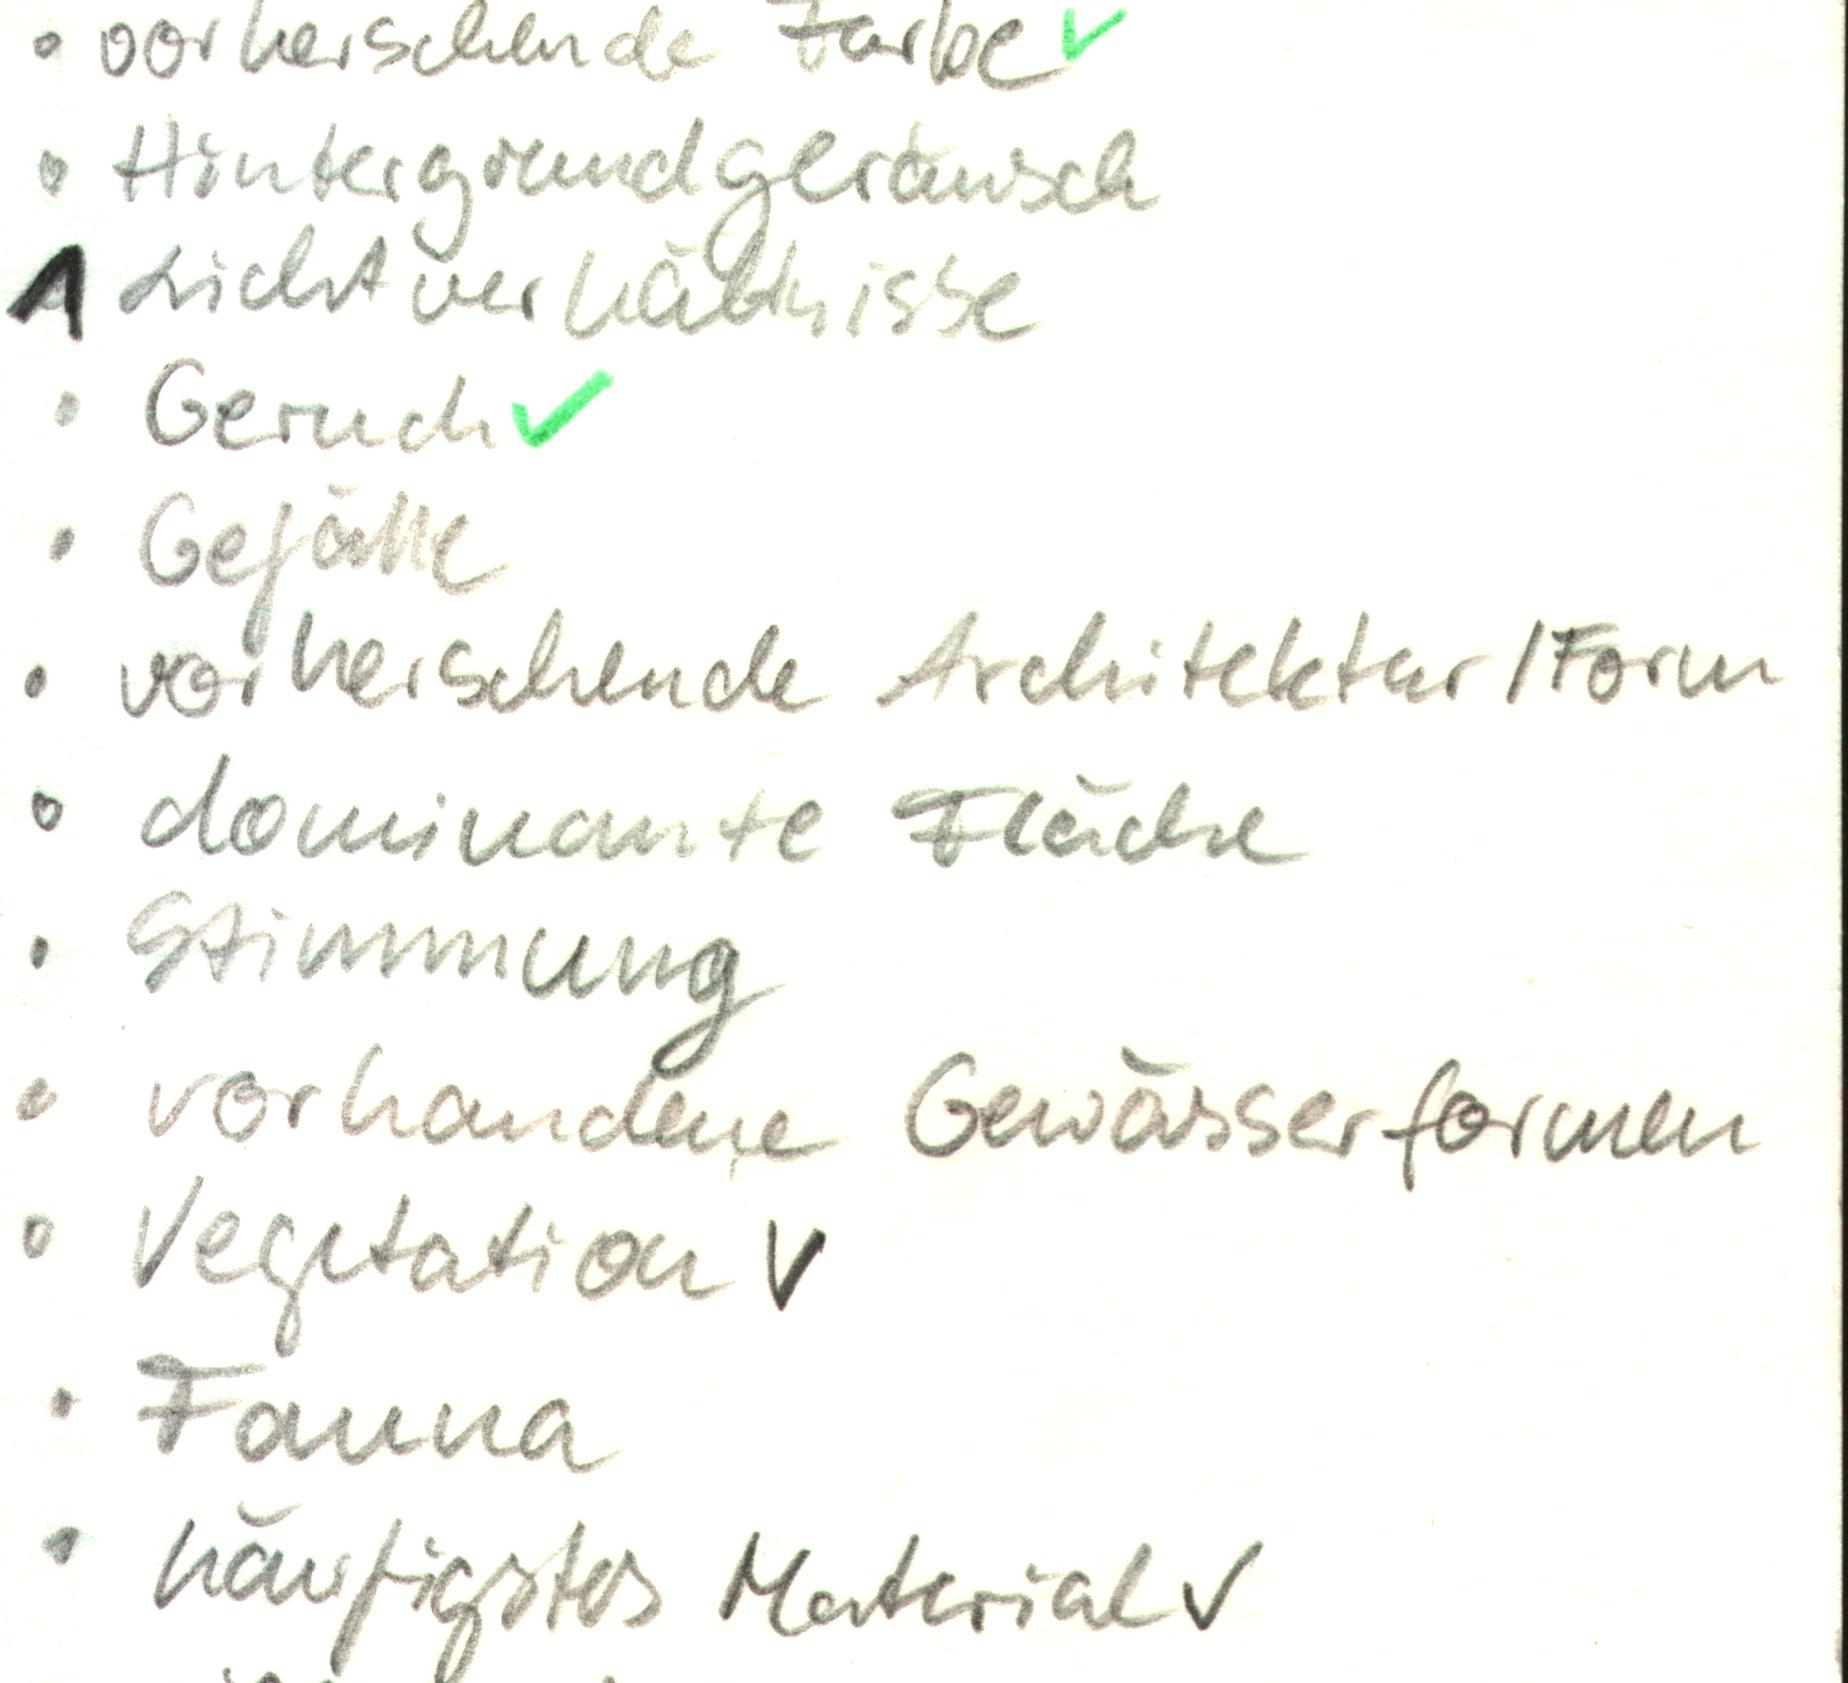 • vorherschende Farbe ✓
• Hintergrundgeräusch
1 Lichtverhältnisse
• Geruch ✓
• Gefälle
• vorherschende Architektur/Form
• dominante Fläche
• Stimmung
• vorhandene Gewässerformen
• Vegetation ✓
• Fauna
• häufigstes Material ✓